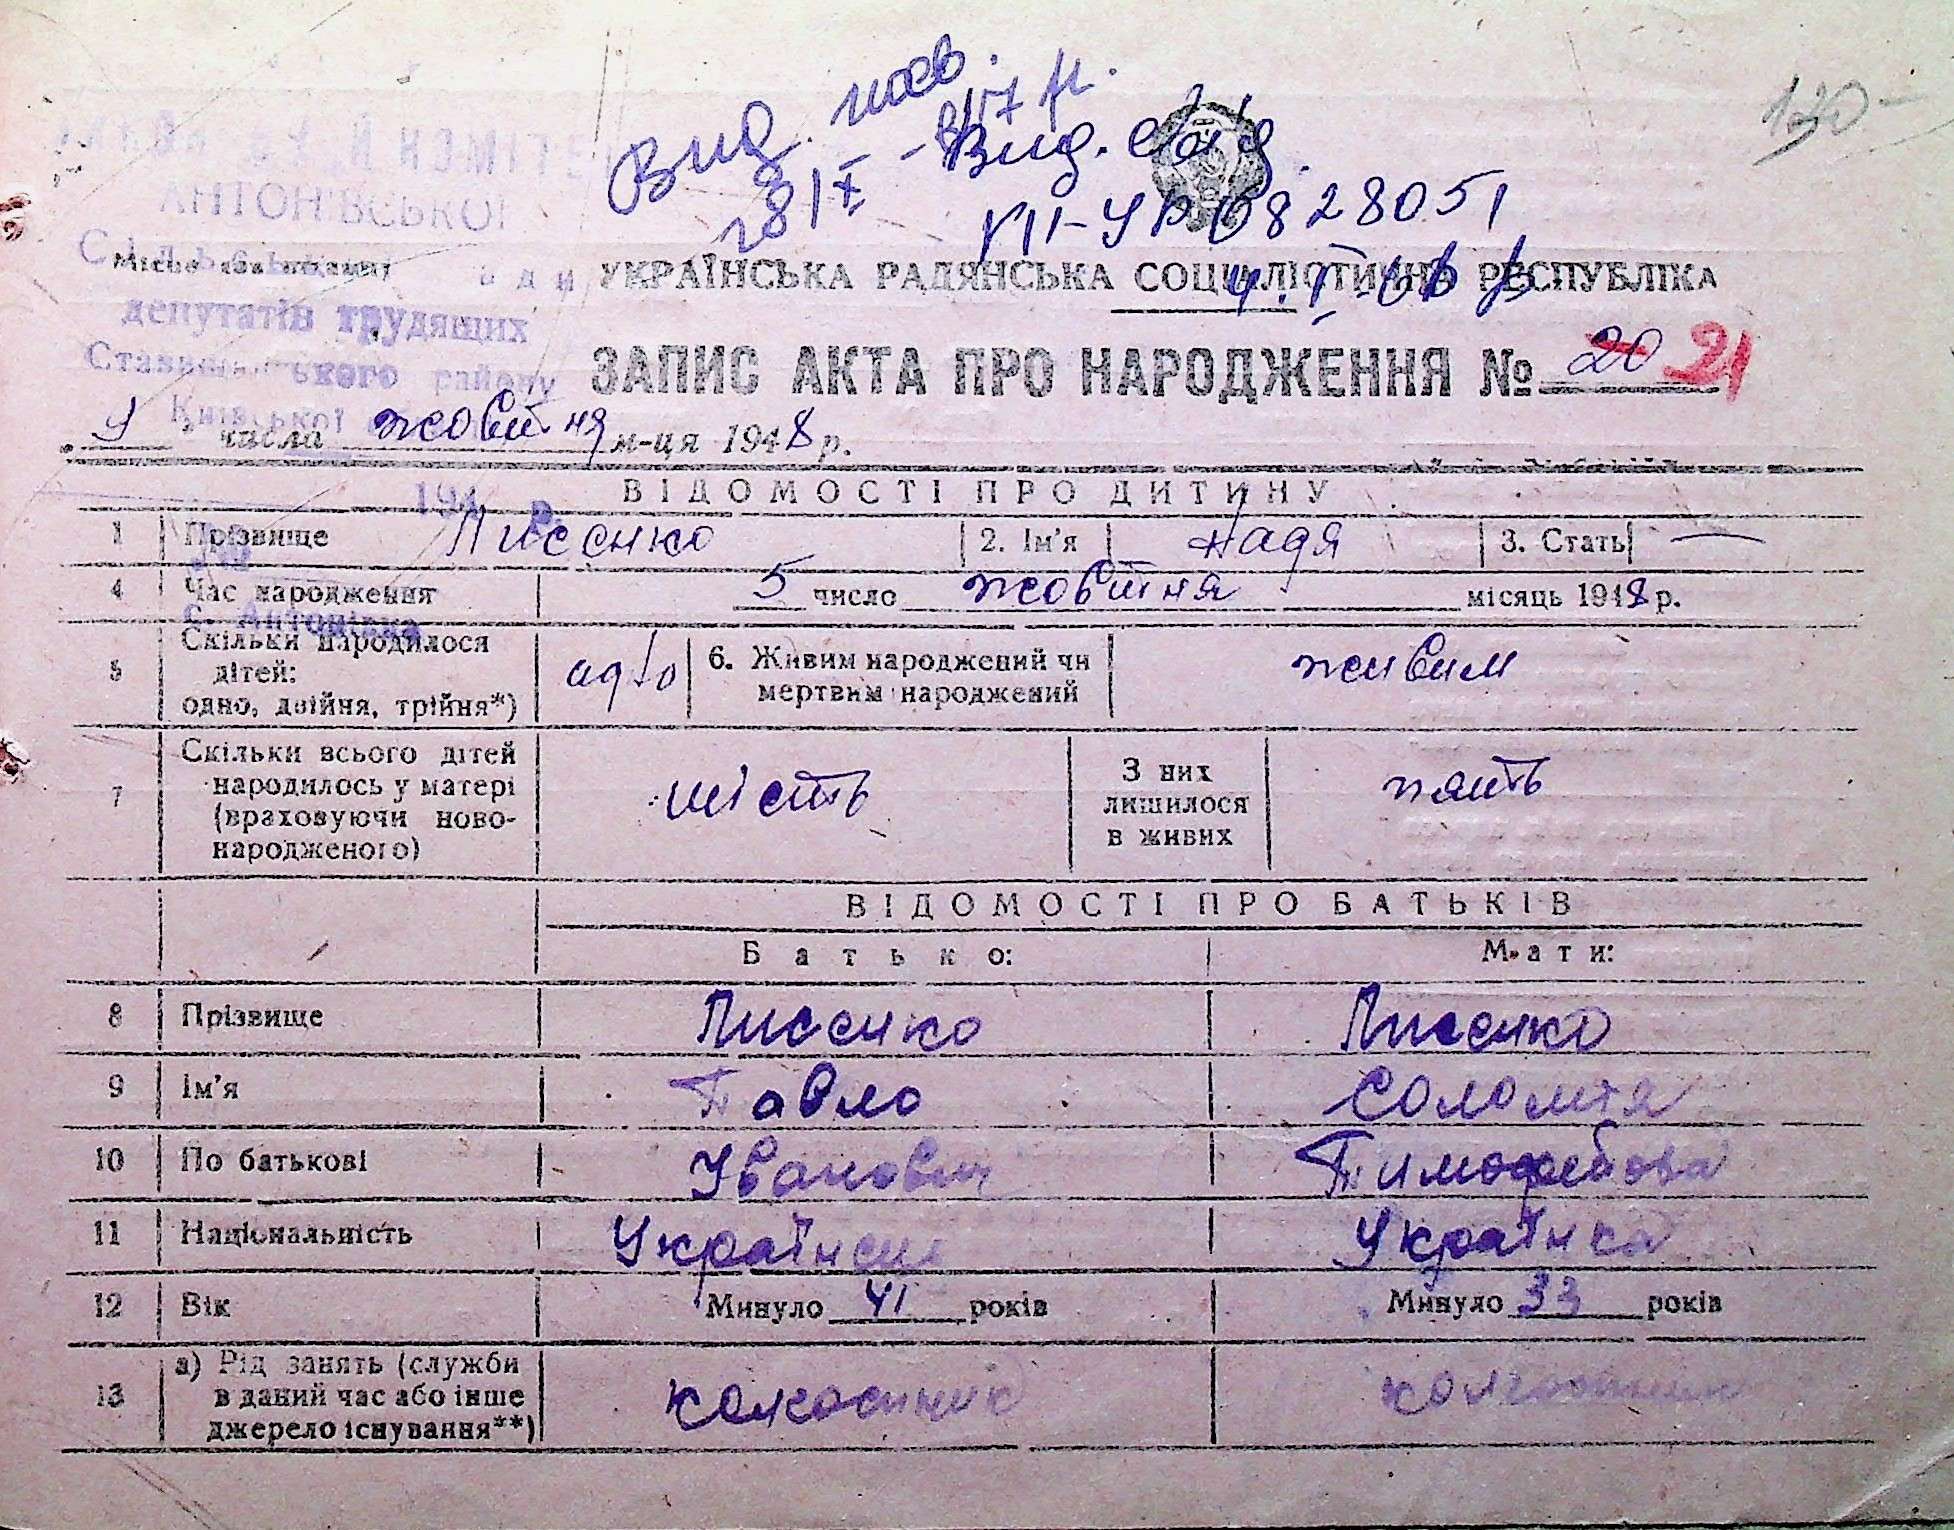 130
Вид. посв.
Вид. свід.
УР 0828051
КОМІТЕ
АНТОНІВСЬКОЇ
Місце для штампу
УКРАЇНСЬКА РАДЯНСЬКА СОЦІАЛІСТИЧНА РЕСПУБЛІКА
депутатів трудящих
району
Київської
ЗАПИС АКТА ПРО НАРОДЖЕННЯ № 20 21
9 " числа жовтня м-ця 1948 р.
194 р.
с. Антонівка
ВІДОМОСТІ ПРО ДИТИНУ
1 Прізвище Лисенко 2. Ім'я Надя 3. Стать —
4 Час народження 5 число жовтня місяць 1948 р.
5 Скільки народилося дітей: одно, двійня, трійня*) одно 6. Живим народжений чи мертвим народжений живим
7 Скільки всього дітей народилось у матері (враховуючи ново-народженого) шість З них лишилося в живих пять
ВІДОМОСТІ ПРО БАТЬКІВ
Батько: Мати:
8 Прізвище Лисенко Лисенко
9 Ім'я Павло Соломія
10 По батькові Іванович Тимофеївна
11 Національність Українець Українка
12 Вік Минуло 41 років Минуло 33 років
13 а) Рід занять (служби в даний час або інше джерело існування**) колгоспник колгоспник